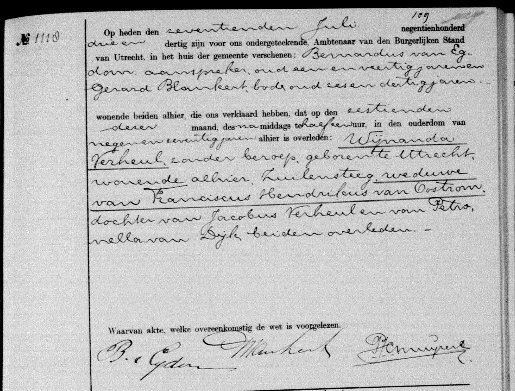 109
№ 1118
Op heden den seventienden Juli negentienhonderd
drie en dertig zijn voor ons ondergeteekende, Ambtenaar van den Burgerlijken Stand
van Utrecht, in het huis der gemeente verschenen: Bernardus van Eg-
dom aanspreker, oud een en veertig jaren en
Gerard Blankert, bode, oud zes en dertig jaren.—
wonende beiden alhier, die ons verklaard hebben, dat op den zestienden
deser maand, des na middags te half een uur, in den ouderdom van
negen en zeventig jaren alhier is overleden: Wijnanda
Verheul, zonder beroep, geboren te Utrecht,
wonende alhier, Zuilensteeg, weduwe
van Franciscus Hendrikus van Oostrom,
dochter van Jacobus Verheul en van Petro-
nella van Dijk beiden overleden. —
Waarvan akte, welke overeenkomstig de wet is voorgelezen.
B. v Egdom Blankert